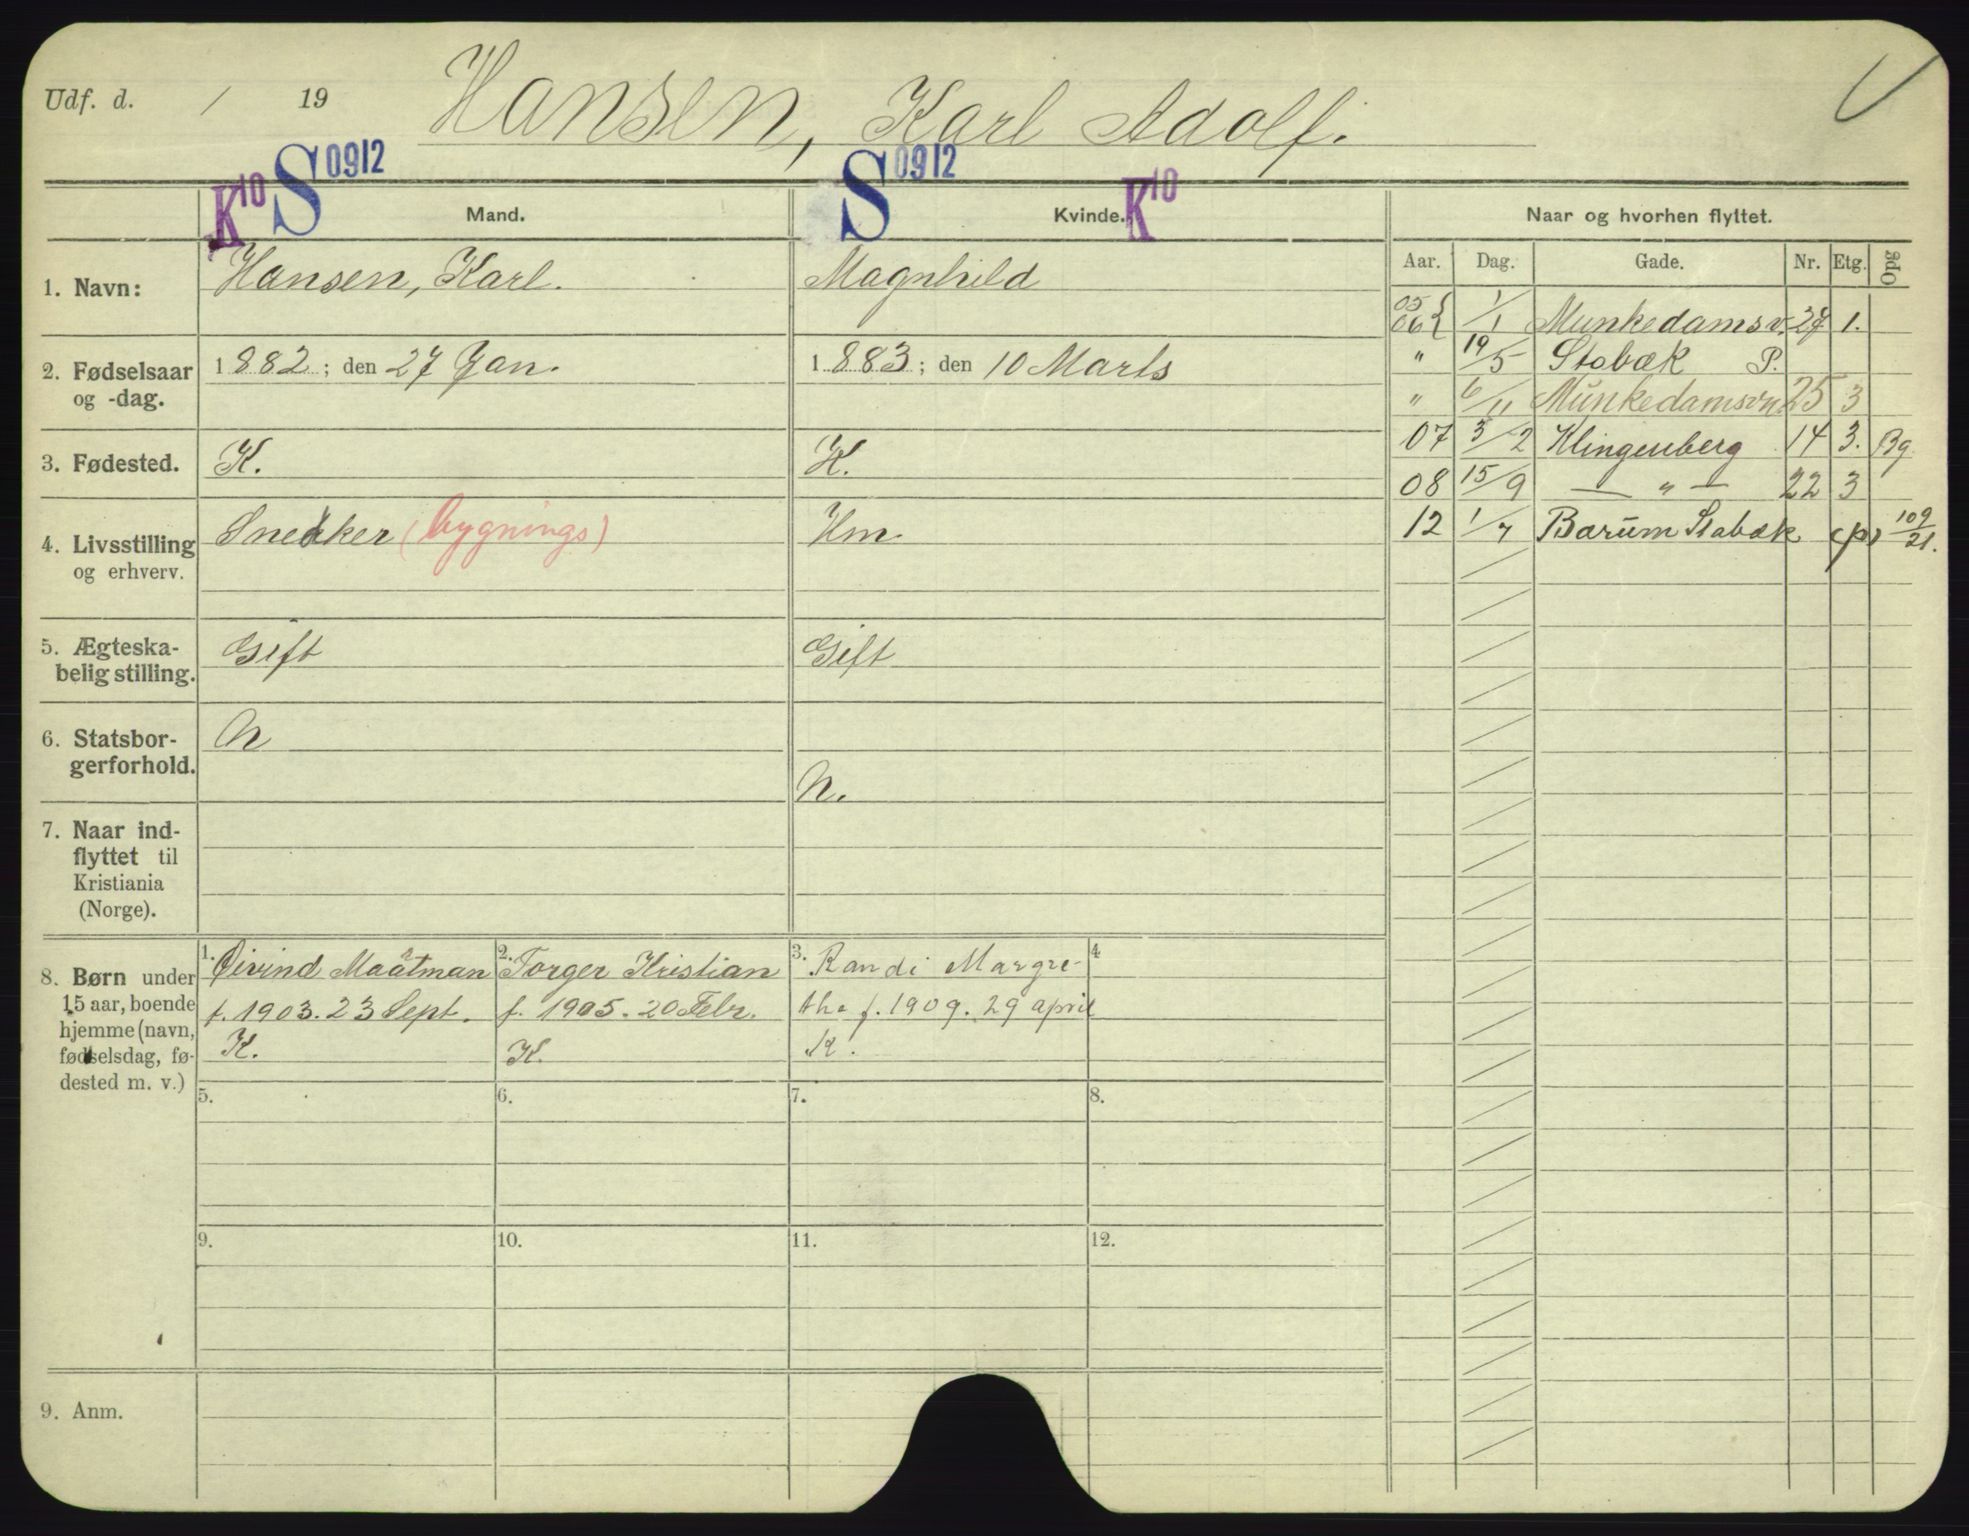 Udf. d. / 19 Hansen, Karl Adolf.
K10 S0912 S0912 K10
Mand. Kvinde. Naar og hvorhen flyttet.
Aar. Dag. Gade. Nr. Etg. Opg
1. Navn: Hansen, Karl. Magnhild
2. Fødselsaar 1882; den 27 Jan. 1883; den 10 Marts
og -dag.
3. Fødested. K. K.
4. Livsstilling Snedker (bygnings) Hm
og erhverv.
5. Ægteska- Gift Gift
belig stilling.
6. Statsbor- N
gerforhold. N.
7. Naar ind-
flyttet til
Kristiania
(Norge).
05
06 { 1/1 Munkedamsv. 27 1.
" 19/5 Stabæk P.
" 6/11 Munkedamsvn 25 3
07 5/2 Klingenberg 14 3. Bg.
08 15/9 — " — 22 3
12 1/7 Barum Stabæk (p) 109/21.
8. Børn under
15 aar, boende
hjemme (navn,
fødselsdag, fø-
dested m. v.)
1. Øivind
f. 1903. 23 Sept.
K.
2. Torger Kristian
f. 1905. 20 Febr.
K.
3. Randi Margre-
the f. 1909. 29 april
K.
4
5. 6. 7. 8.
9. 10. 11. 12.
9. Anm.